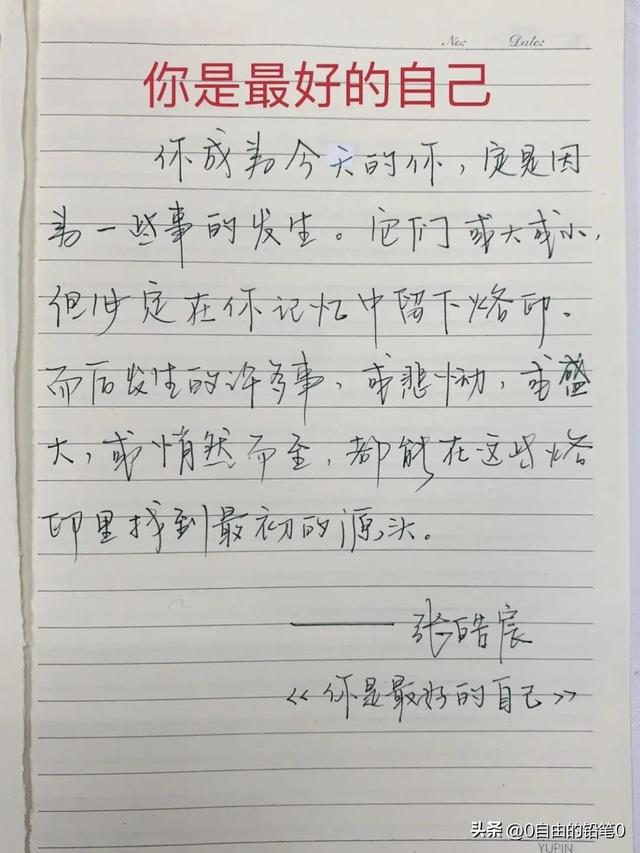 No:    Date:
你是最好的自己
你成为今天的你，定是因
为一些事的发生。它们或大或小，
但必定在你记忆中留下烙印。
而后发生的许多事，或悲恸，或盛
大，或悄然而至，都能在这些烙
印里找到最初的源头。
——张皓宸
<<你是最好的自己>>
头条 @0自由的铅笔0
YUPIN